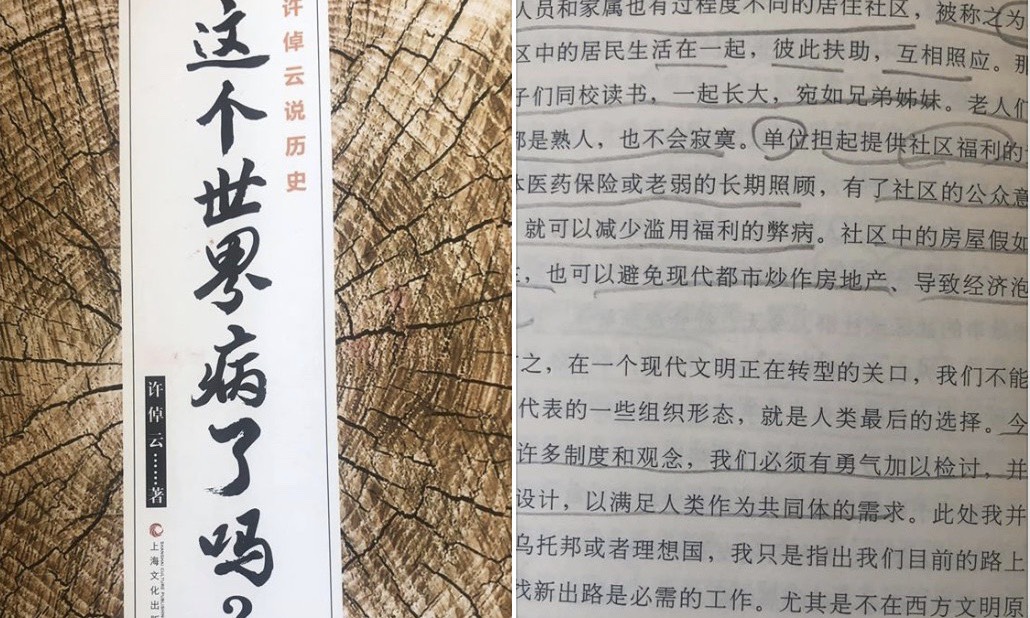 许倬云说历史
这个世界病了吗?
许倬云……著
上海文化出版
人员和家属也有过程度不同的居住社区，被称之为
区中的居民生活在一起，彼此扶助，互相照应。那
子们同校读书，一起长大，宛如兄弟姊妹。老人们
都是熟人，也不会寂寞。单位担起提供社区福利的
体医药保险或老弱的长期照顾，有了社区的公众意
就可以减少滥用福利的弊病。社区中的房屋假如
，也可以避免现代都市炒作房地产、导致经济泡
之，在一个现代文明正在转型的关口，我们不能
代表的一些组织形态，就是人类最后的选择。今
许多制度和观念，我们必须有勇气加以检讨，并
设计，以满足人类作为共同体的需求。此处我并
乌托邦或者理想国，我只是指出我们目前的路上
找新出路是必需的工作。尤其是不在西方文明原